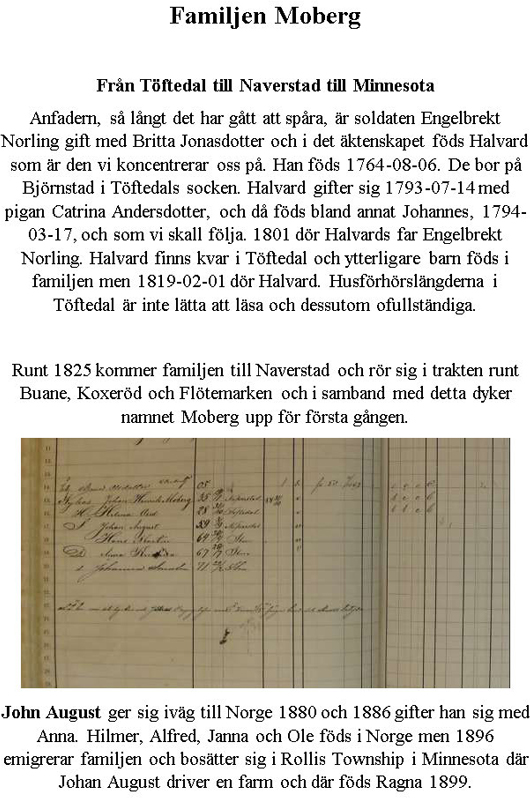 Familjen Moberg
Från Töftedal till Naverstad till Minnesota
Anfadern, så långt det har gått att spåra, är soldaten Engelbrekt
Norling gift med Britta Jonasdotter och i det äktenskapet föds Halvard
som är den vi koncentrerar oss på. Han föds 1764-08-06. De bor på
Björnstad i Töftedals socken. Halvard gifter sig 1793-07-14 med
pigan Catrina Andersdotter, och då föds bland annat Johannes, 1794-
03-17, och som vi skall följa. 1801 dör Halvards far Engelbrekt
Norling. Halvard finns kvar i Töftedal och ytterligare barn föds i
familjen men 1819-02-01 dör Halvard. Husförhörslängderna i
Töftedal är inte lätta att läsa och dessutom ofullständiga.
Runt 1825 kommer familjen till Naverstad och rör sig i trakten runt
Buane, Koxeröd och Flötemarken och i samband med detta dyker
namnet Moberg upp för första gången.
Johan Moberg 35
28
Johan August 59
64
67
Johanna 71
John August ger sig iväg till Norge 1880 och 1886 gifter han sig med
Anna. Hilmer, Alfred, Janna och Ole föds i Norge men 1896
emigrerar familjen och bosätter sig i Rollis Township i Minnesota där
Johan August driver en farm och där föds Ragna 1899.